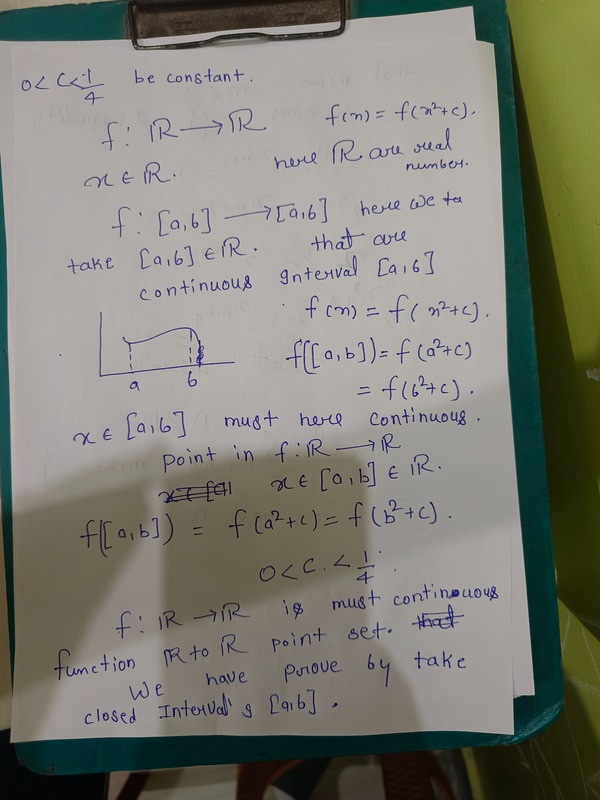 0 < C < 1/4 be constant.
f: ℝ → ℝ f(x) = f(x²+c).
x ∈ ℝ. here ℝ are real
number.
f: [a,b] → [a,b] here we ta
take [a,b] ∈ ℝ. that are
continuous Interval [a,b]
f(x) = f(x²+c).
f([a,b]) = f(a²+c)
= f(b²+c).
a b
x ∈ [a,b] must here continuous.
point in f: ℝ → ℝ
x ∈ [a,b] ∈ ℝ.
f([a,b]) = f(a²+c) = f(b²+c).
0 < C. < 1/4.
f: ℝ → ℝ is must continuous
function ℝ to ℝ point set. that
We have prove by take
closed Interval's [a,b].